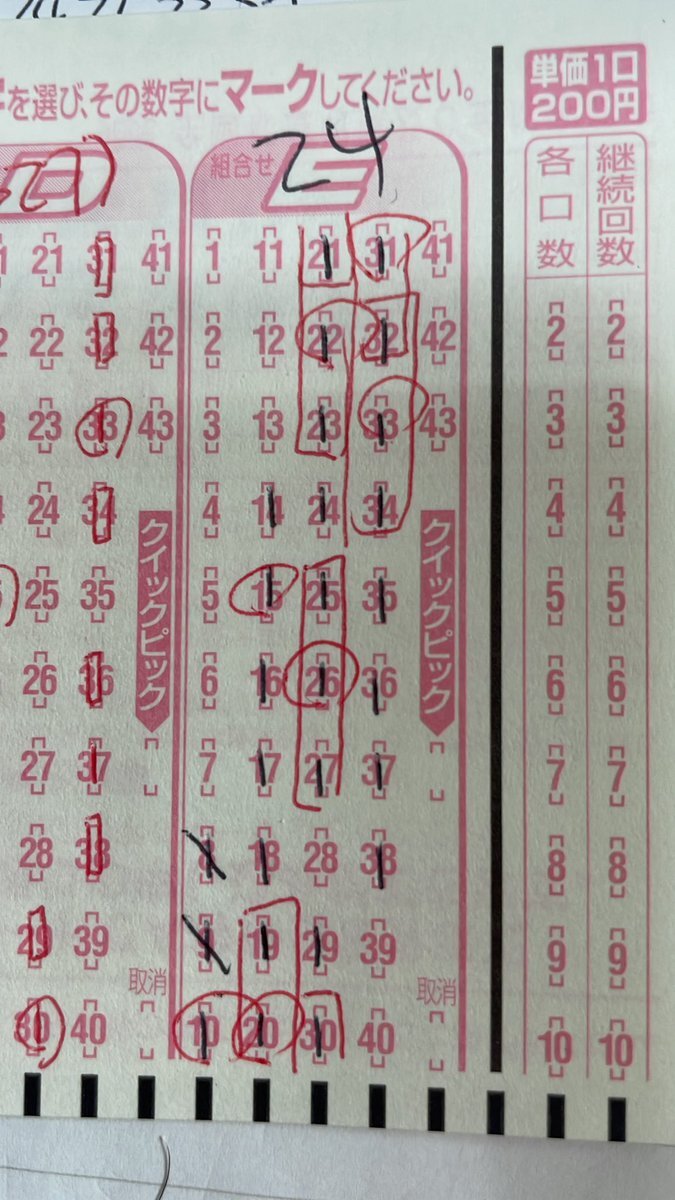 を選び、その数字にマークしてください。
単価1口
200円
組合せ E
24
各口数
継続回数
21 31 41
22 32 42
23 33 43
24 34
25 35
26 36
27 37
28 38
29 39
30 40
クイックピック
取消
1 11 21 31 41
2 12 22 32 42
3 13 23 33 43
4 14 24 34
5 15 25 35
6 16 26 36
7 17 27 37
8 18 28 38
9 19 29 39
10 20 30 40
クイックピック
取消
2 2
3 3
4 4
5 5
6 6
7 7
8 8
9 9
10 10